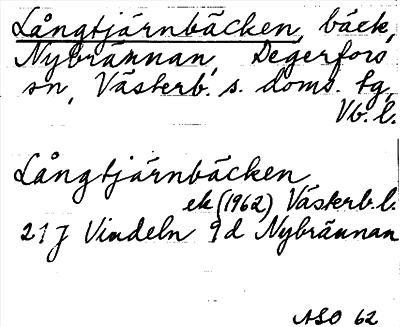 Långtjärnbäcken, bäck,
Nybrännan, Degerfors
sn, Västerb. s. doms. tg,
Vb. l.
Långtjärnbäcken
ek (1962) Västerb. l.
21J Vindeln 9d Nybrännan
ASO 62